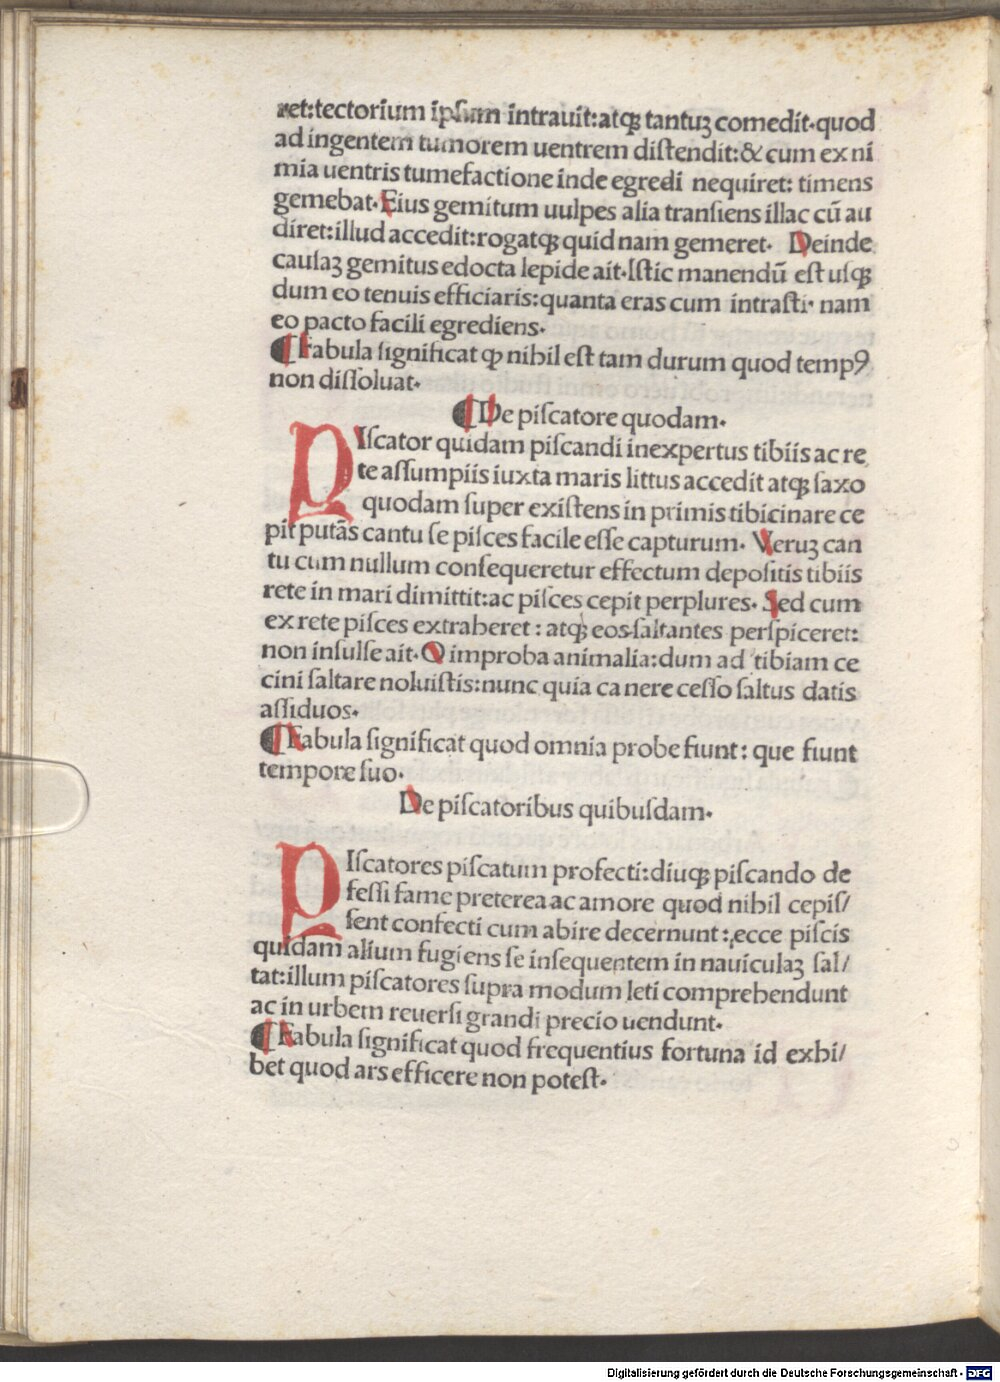 ret:tectorium ipſum intrauit:atqꝫ tantuꝫ comedit·quod
ad ingentem tumorem uentrem diſtendit:& cum ex ni
mia uentris tumefactione inde egredi nequiret: timens
gemebat·Eius gemitum uulpes alia tranſiens illac cū au
diret:illud accedit:rogatqꝫ quid nam gemeret· Deinde
cauſaꝫ gemitus edocta lepide ait·Iſtic manendū eſt uſqꝫ
dum eo tenuis efficiaris:quanta eras cum intraſti· nam
eo pacto facili egrediens·
¶ Fabula ſignificat ꝙ nihil eſt tam durum quod tempꝰ
non diſſoluat·
¶ De piſcatore quodam·
PIſcator quidam piſcandi inexpertus tibiis ac re
te aſſumpiis iuxta maris littus accedit atqꝫ ſaxo
quodam ſuper exiſtens in primis tibicinare ce
pit putãs cantu ſe piſces facile eſſe capturum· Veruꝫ can
tu cum nullum conſequeretur effectum depoſitis tibiis
rete in mari dimittit:ac piſces cepit perplures· Sed cum
ex rete piſces extraheret : atqꝫ eos ſaltantes perſpiceret:
non inſulſe ait·O improba animalia:dum ad tibiam ce
cini ſaltare noluiſtis:nunc quia ca nere ceſſo ſaltus datis
aſſiduos·
¶ Fabula ſignificat quod omnia probe fiunt: que fiunt
tempore ſuo·
De piſcatoribus quibuſdam·
PIſcatores piſcatum profecti:diuqꝫ piſcando de
feſſi fame preterea ac amore quod nihil cepiſ/
ſent confecti cum abire decernunt:ecce piſcis
quidam alium fugiens ſe inſequentem in nauiculaꝫ ſal/
tat:illum piſcatores ſupra modum leti comprehendunt
ac in urbem reuerſi grandi precio uendunt·
¶ Fabula ſignificat quod frequentius fortuna id exhi/
bet quod ars efficere non poteſt·
Digitalisierung gefördert durch die Deutsche Forschungsgemeinschaft - DFG